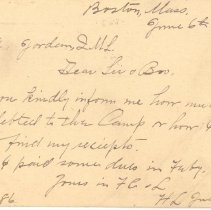 Boston, Mass.
June 6th
Gordon
Dear Sir & Bro.
kindly inform me how mu
to the Camp or how
find my receipts.
paid some dues in
Yours in F. C. & L.
H L
86